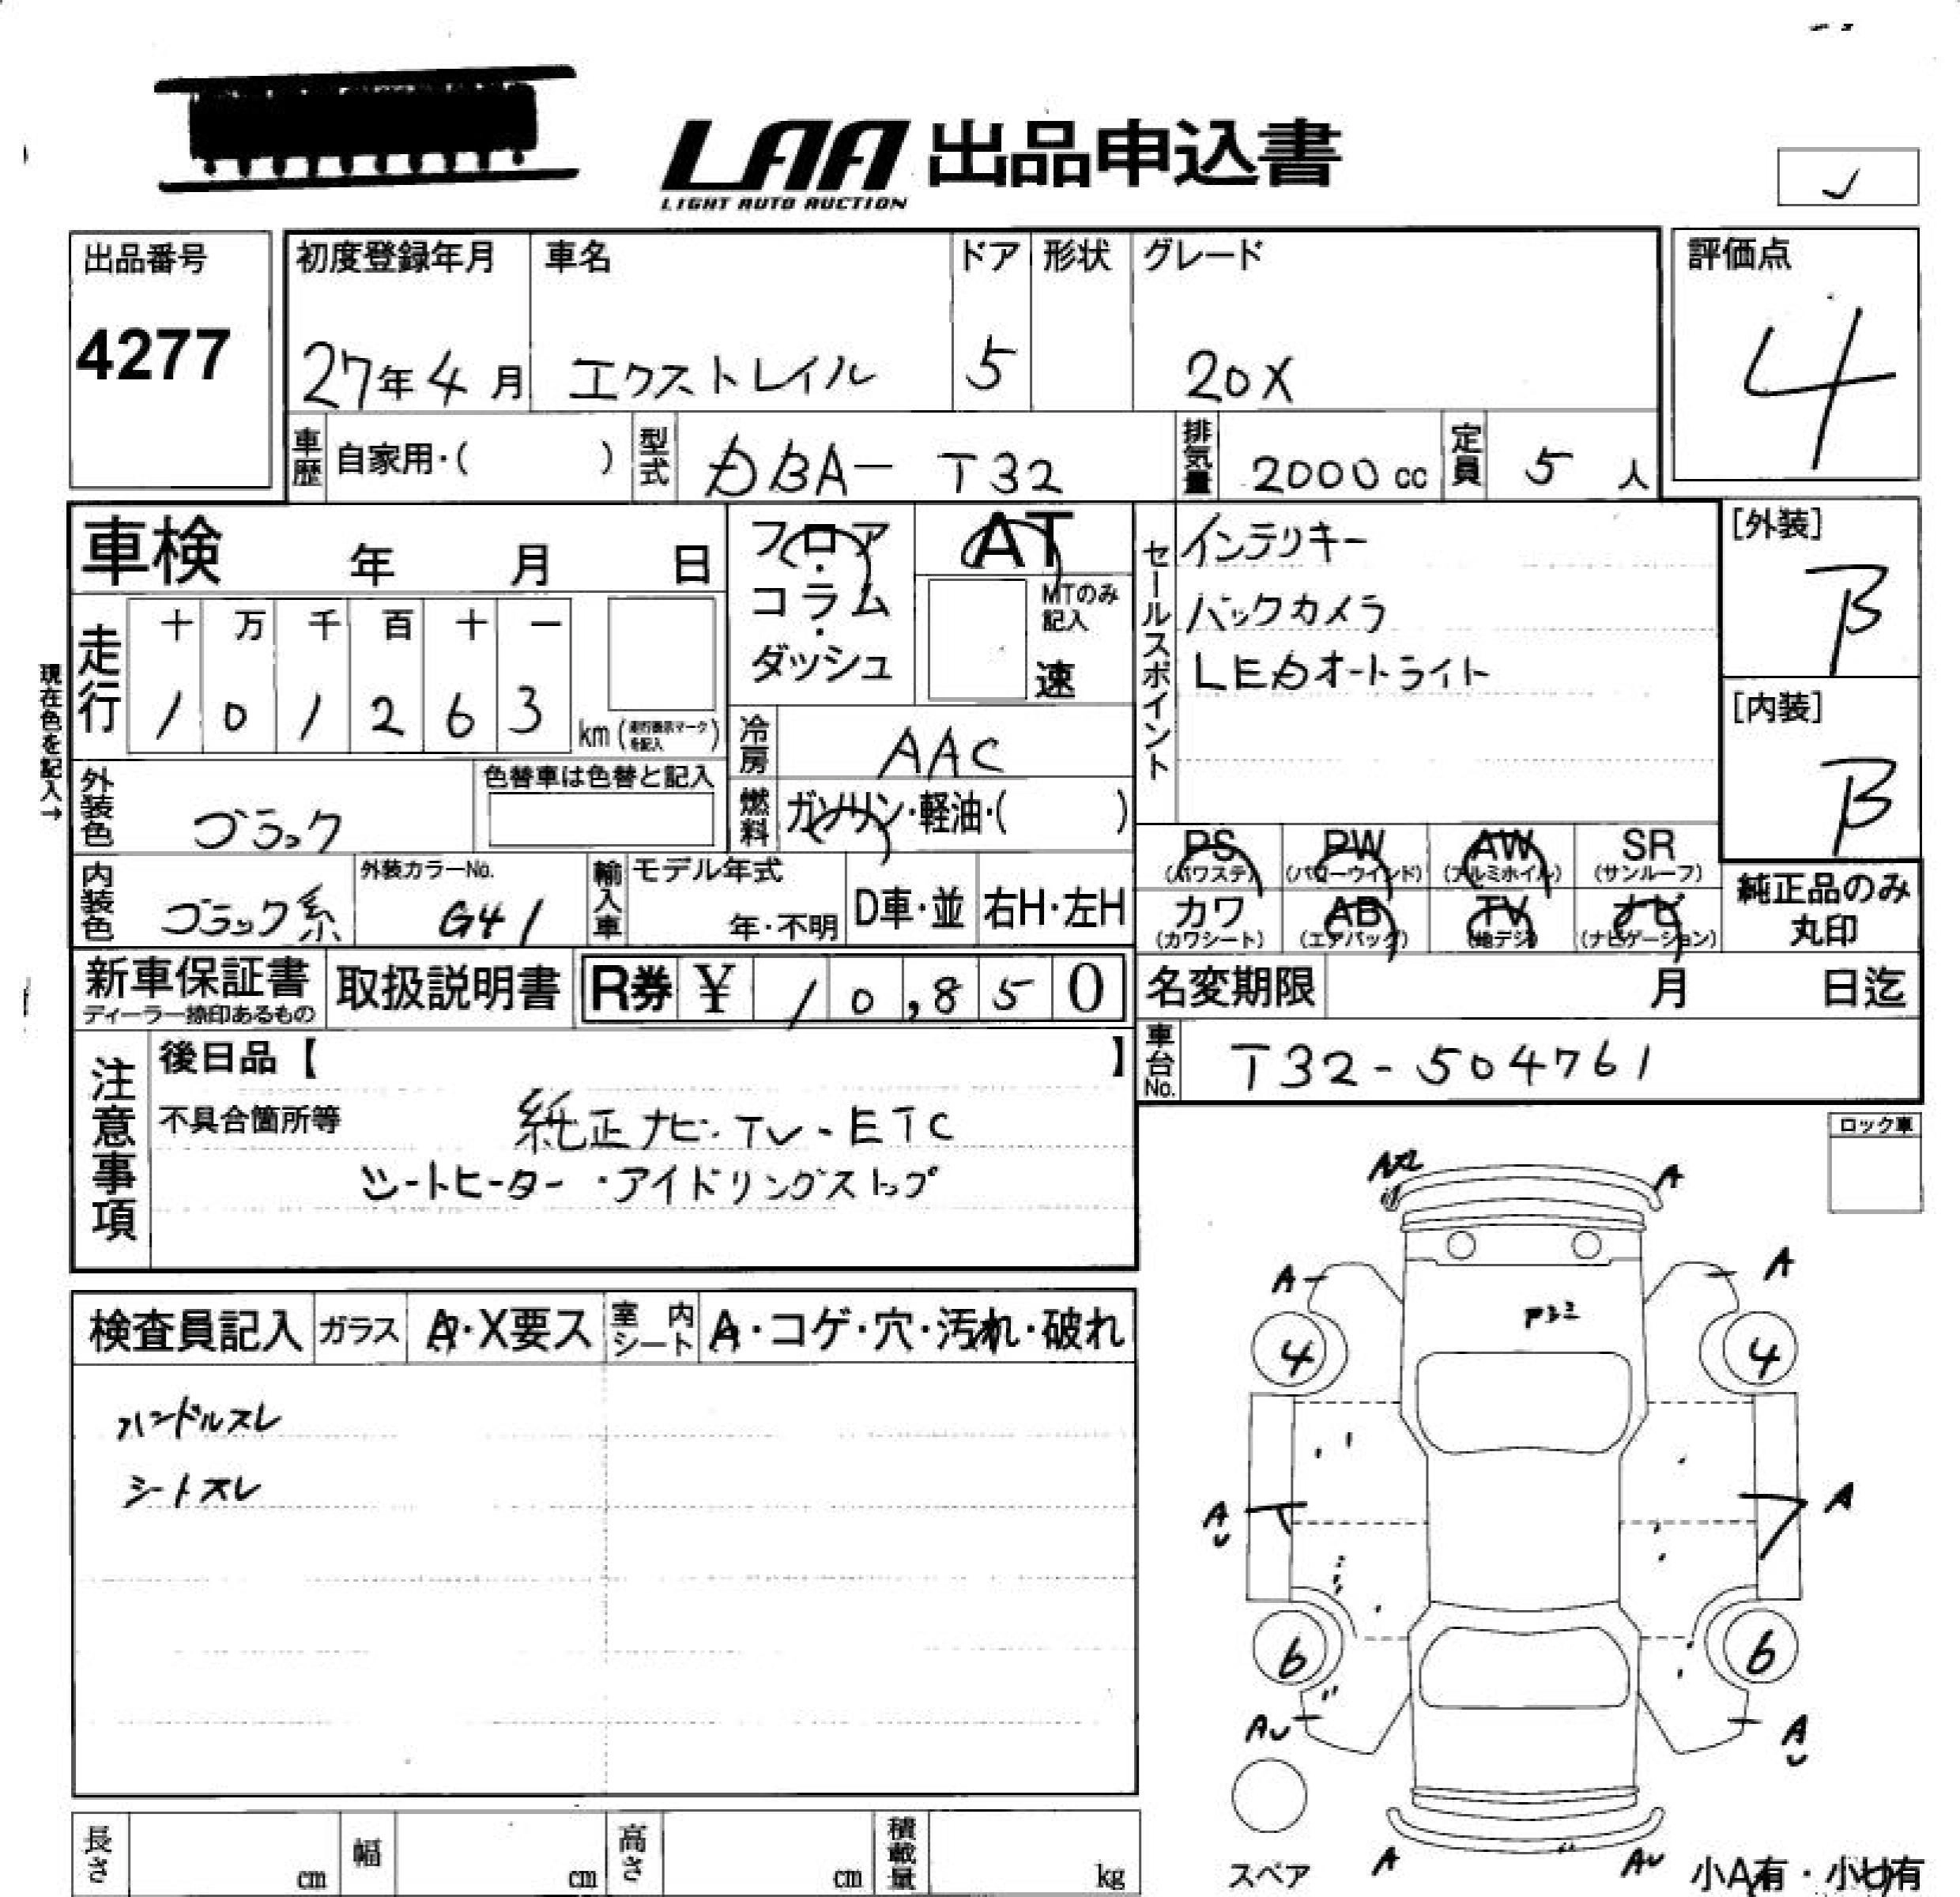 LAA 出品申込書
LIGHT AUTO AUCTION
出品番号
4277
初度登録年月
27年4月
車名
エクストレイル
ドア
5
形状
グレード
20X
評価点
4
車歴 自家用・( )
型式 DBA- T32
排気量 2000cc
定員 5人
車検 年 月 日
フロア・コラム・ダッシュ
AT
MTのみ記入
速
セールスポイント
インテリキー
バックカメラ
LEDオートライト
[外装]
B
[内装]
B
現在色を記入→
走行
十 万 千 百 十 一
1 0 1 2 6 3 km
冷房 AAC
外装色 ブラック
色替車は色替と記入
燃料 ガソリン・軽油・( )
PS (パワステ)
PW (パワーウインド)
AW (アルミホイル)
SR (サンルーフ)
内装色 ブラック系
外装カラーNo. G41
輸入車
モデル年式
年・不明
D車・並
右H・左H
カワ (カワシート)
AB (エアバッグ)
TV (地デジ)
ナビ (ナビゲーション)
純正品のみ丸印
新車保証書
ディーラー捺印あるもの
取扱説明書
R券 ¥ 10,850
名変期限 月 日迄
車台No. T32-504761
注意事項
後日品【 】
不具合箇所等
純正ナビ・TV・ETC
シートヒーター・アイドリングストップ
ロック車
検査員記入
ガラス
A・X要ス
室内シート
A・コゲ・穴・汚れ・破れ
ハンドルスレ
シートスレ
A
A
A
4
4
A
U
A
6
6
AU
A
U
スペア
A
AU
小A有・小U有
長さ cm
幅 cm
高さ cm
積載量 kg